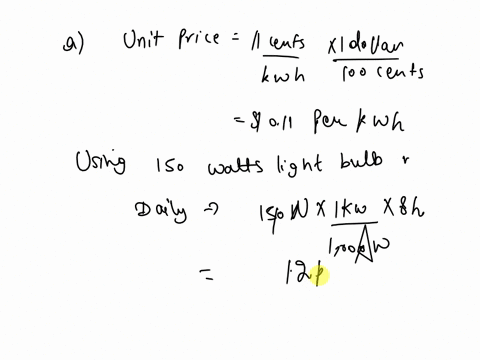 a) Unit Price = 11 cents / kwh × 1 dollar / 100 cents
= $0.11 per kwh
Using 150 watts light bulb
Daily → 150 W × 1 kw / 1000 W × 8h
= 1.2k